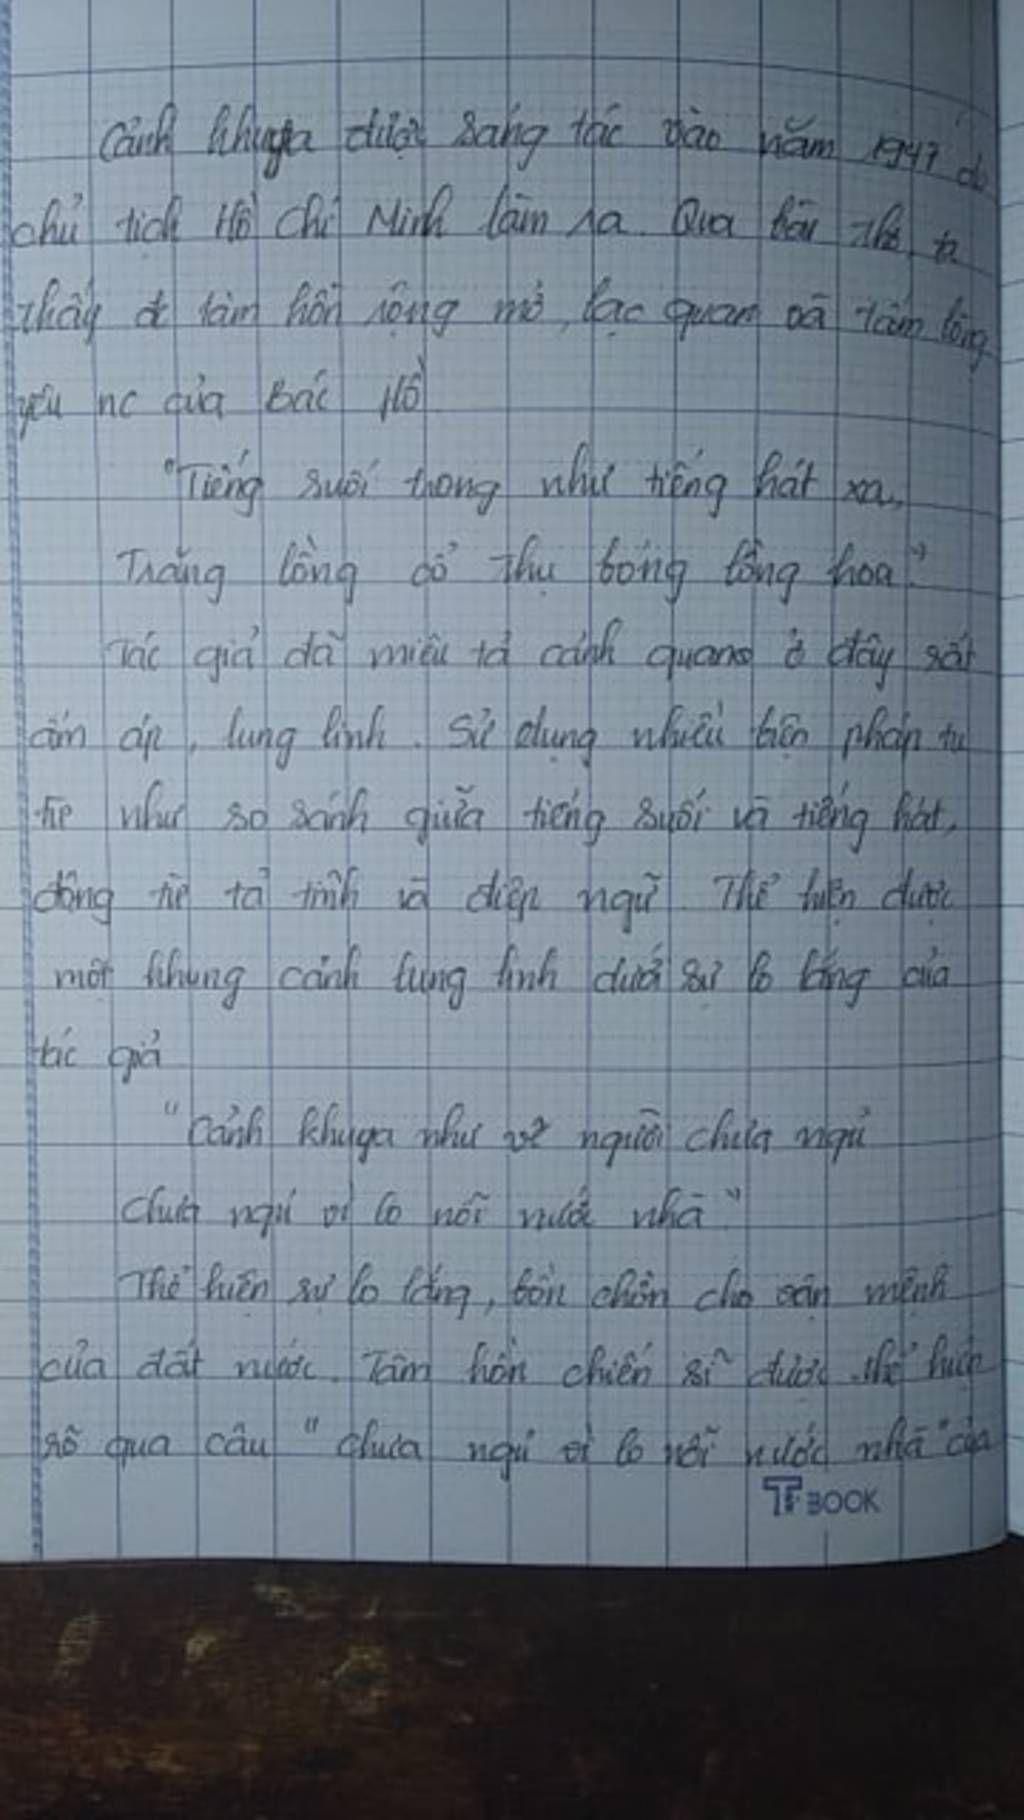 Cảnh khuya được sáng tác vào năm 1947 do
chủ tịch Hồ Chí Minh làm ra. Qua bài thơ ta
thấy đc tâm hồn rộng mở, lạc quan và tấm lòng
yêu nc của Bác Hồ
"Tiếng suối trong như tiếng hát xa,
Trăng lồng cổ thụ bóng lồng hoa."
Tác giả đã miêu tả cảnh quang ở đây rất
ấm áp, lung linh. Sử dụng nhiều biện pháp tu
từ như so sánh giữa tiếng suối và tiếng hát,
động từ tả tính và điệp ngữ. Thể hiện được
một khung cảnh lung linh dưới sự lo lắng của
tác giả
"Cảnh khuya như vẽ người chưa ngủ
Chưa ngủ vì lo nỗi nước nhà"
Thể hiện sự lo lắng, bồn chồn cho vận mệnh
của đất nước. Tâm hồn chiến sĩ được thể hiện
rõ qua câu "chưa ngủ vì lo nỗi nước nhà" của
TP BOOK